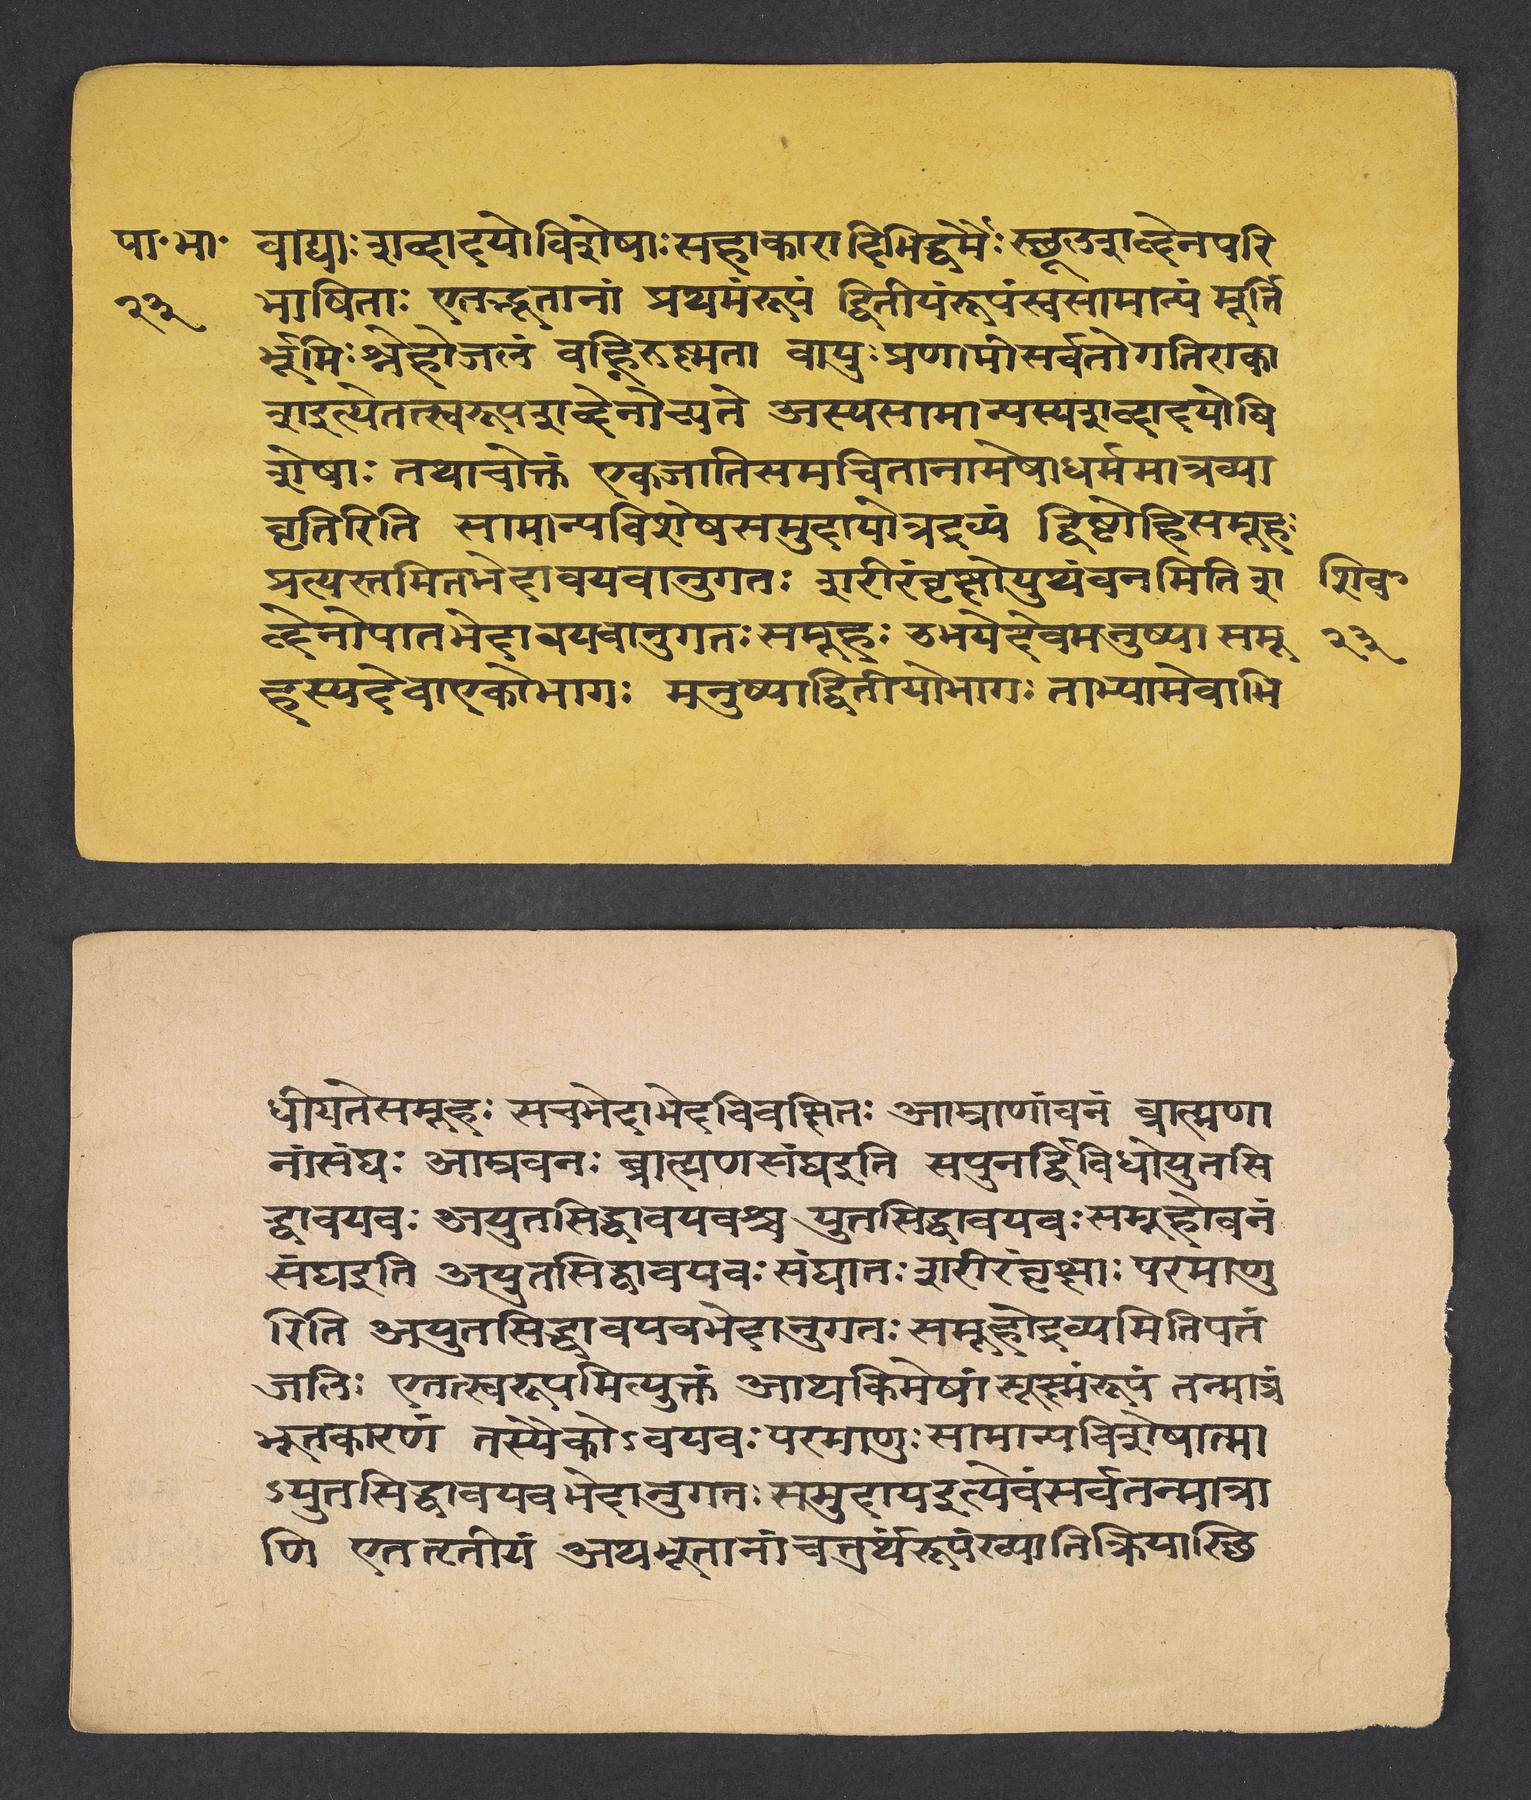 पा॰भा॰ वाद्याः शब्दादयोविशेषाः सहाकारादिभिर्द्धर्मैः स्थूलशब्देनपरि
२३ भाषिताः एतद्भूतानां प्रथमंरूपं द्वितीयंरूपंस्वसामान्यं मूर्त्ति
र्भूमिः श्नेहोजलं वह्निरुष्मता वायुः प्रणामीसर्वतोगतिराका
शइत्येतत्स्वरूपशब्देनोच्यते अस्यसामान्यस्यशब्दादयोवि
शेषाः तथाचोक्तं एकजातिसमचितानामेषाधर्ममात्रव्या
वृतिरिति सामान्यविशेषसमुदायोत्रद्रव्यं द्विष्टोहिसमूहः
प्रत्यस्तमितभेदावयवानुगतः शरीरंवृक्षोयुथंवनमितिश शिव॰
ब्देनोपातभेदावयवानुगतः समूहः उभयेदेवमनुष्या समू २३
हस्यदेवाएकोभागः मनुष्याद्वितीयोभागः ताभ्यामेवाभि
धीयतेसमूहः सचभेदाभेदविवक्षितः आम्राणांवनं ब्राह्मणा
नांसंघः आम्रवनः ब्राह्मणसंघइति सपुनर्द्विविधोयुतसि
द्धावयवः अयुतसिद्धावयवश्च युतसिद्धावयवः समूहोवनं
संघइति अयुतसिद्धावयवः संघातः शरीरंवृक्षाः परमाणु
रिति अयुतसिद्धावयवभेदानुगतः समूहोद्रव्यमितिपतं
जलिः एतत्स्वरूपमित्युक्तं आथकिमेषां सूक्ष्मंरूपं तन्मात्रं
भूतकारणं तस्यैकोऽवयवः परमाणुः सामान्यविशेषात्मा
ऽयुतसिद्धावयवभेदानुगतः समुदायइत्येवंसर्वतन्मात्रा
णि एतत्तृतीयं अथभूतानांचतुर्थंरूपंख्यातिक्रियास्थि